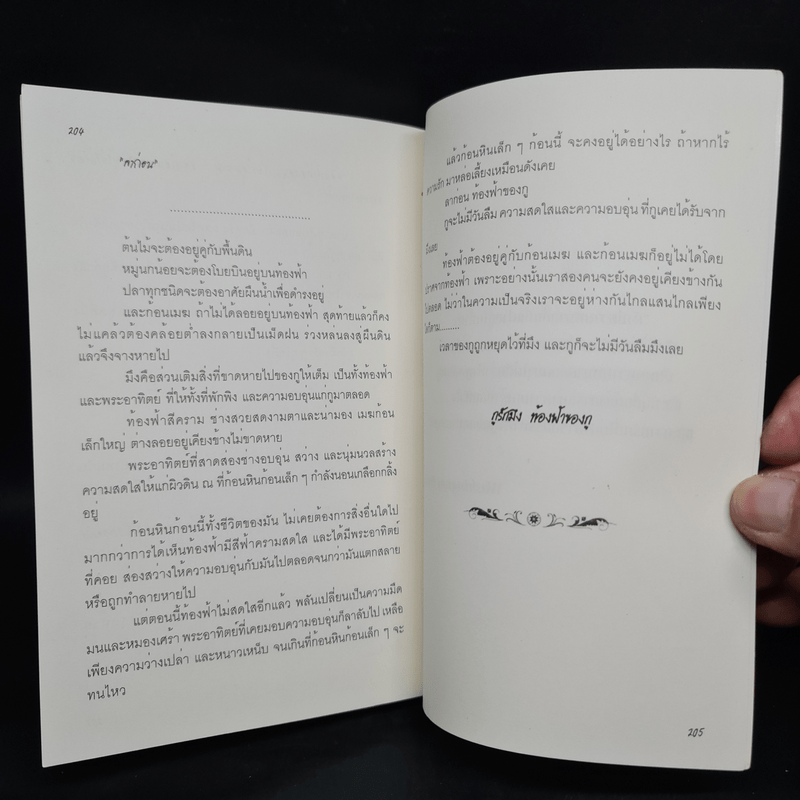 204
"ลาก่อน"
........................................
ต้นไม้จะต้องอยู่คู่กับพื้นดิน
หมู่นกน้อยจะต้องโบยบินอยู่บนท้องฟ้า
ปลาทุกชนิดจะต้องอาศัยผืนน้ำเพื่อดำรงอยู่
และก้อนเมฆ ถ้าไม่ได้ลอยอยู่บนท้องฟ้า สุดท้ายแล้วก็คง
ไม่แคล้วต้องคล้อยต่ำลงกลายเป็นเม็ดฝน ร่วงหล่นลงสู่ผืนดิน
แล้วจึงจางหายไป
มึงคือส่วนเติมสิ่งที่ขาดหายไปของกูให้เต็ม เป็นทั้งท้องฟ้า
และพระอาทิตย์ ที่ให้ทั้งที่พักพิง และความอบอุ่นแก่กูมาตลอด
ท้องฟ้าสีคราม ช่างสวยสดงามตาและน่ามอง เมฆก้อน
เล็กใหญ่ ต่างลอยอยู่เคียงข้างไม่ขาดหาย
พระอาทิตย์ที่สาดส่องช่างอบอุ่น สว่าง และนุ่มนวลสร้าง
ความสดใสให้แก่ผิวดิน ณ ที่ก้อนหินก้อนเล็ก ๆ กำลังนอนเกลือกกลิ้ง
อยู่
ก้อนหินก้อนนี้ทั้งชีวิตของมัน ไม่เคยต้องการสิ่งอื่นใดไป
มากกว่าการได้เห็นท้องฟ้ามีสีฟ้าครามสดใส และได้มีพระอาทิตย์
ที่คอย ส่องสว่างให้ความอบอุ่นกับมันไปตลอดจนกว่ามันแตกสลาย
หรือถูกทำลายหายไป
แต่ตอนนี้ท้องฟ้าไม่สดใสอีกแล้ว พลันเปลี่ยนเป็นความมืด
มนและหมองเศร้า พระอาทิตย์ที่เคยมอบความอบอุ่นก็ลาลับไป เหลือ
เพียงความว่างเปล่า และหนาวเหน็บ จนเกินที่ก้อนหินก้อนเล็ก ๆ จะ
ทนไหว
แล้วก้อนหินเล็ก ๆ ก้อนนี้ จะคงอยู่ได้อย่างไร ถ้าหากไร้
ความรัก มาหล่อเลี้ยงเหมือนดังเคย
ลาก่อน ท้องฟ้าของกู
กูจะไม่มีวันลืม ความสดใสและความอบอุ่น ที่กูเคยได้รับจาก
มึงเลย
ท้องฟ้าต้องอยู่คู่กับก้อนเมฆ และก้อนเมฆก็อยู่ไม่ได้โดย
ปราศจากท้องฟ้า เพราะอย่างนั้นเราสองคนจะยังคงอยู่เคียงข้างกัน
ไปตลอด ไม่ว่าในความเป็นจริงเราจะอยู่ห่างกันไกลแสนไกลเพียง
ใดก็ตาม.........
เวลาของกูถูกหยุดไว้ที่มึง และกูก็จะไม่มีวันลืมมึงเลย
กูรักมึง ท้องฟ้าของกู
205